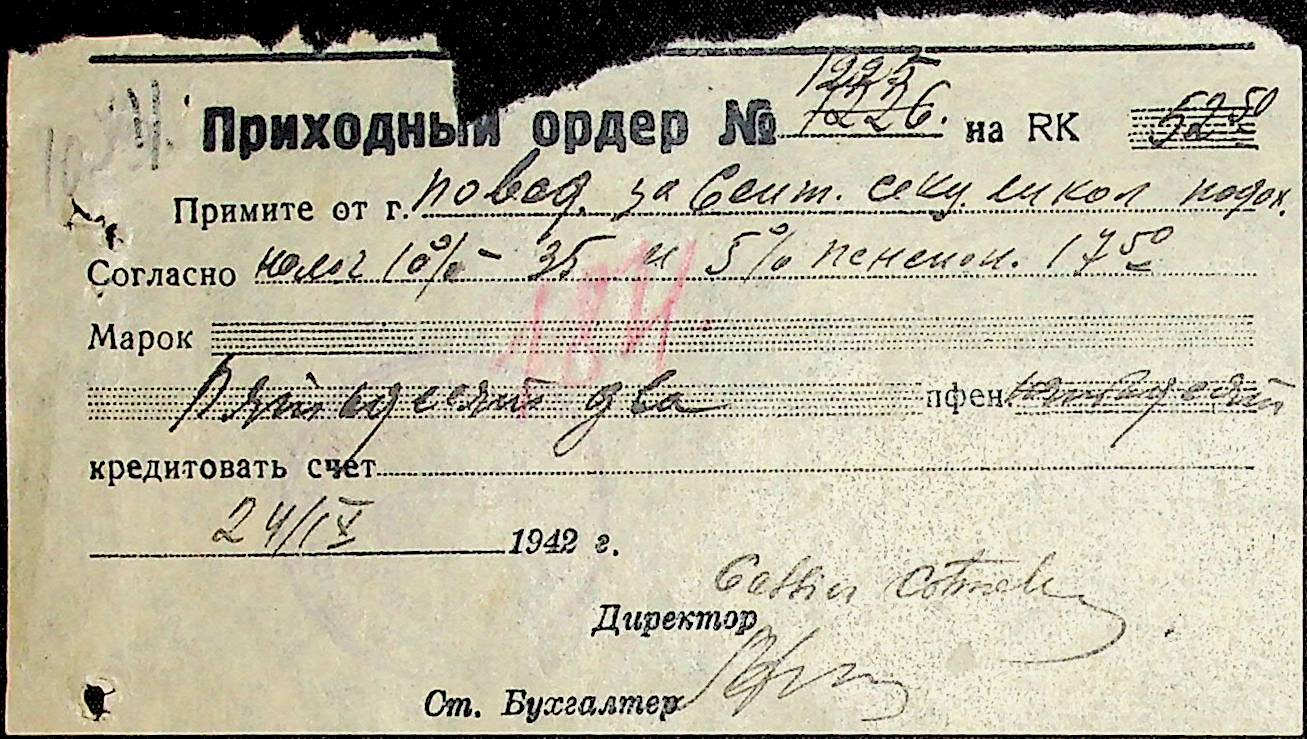 1225
Приходный ордер № 1226. на RK 52 50
Примите от г. по вед. за Сент. секу. школ подох.
Согласно налог 10% - 35 и 5% пенсион. 17 50
184
Марок
Пятьдесят два пфен пятьдесят
кредитовать счет
24/IX 1942 г.
Cassier
Директор
Ст. Бухгалтер